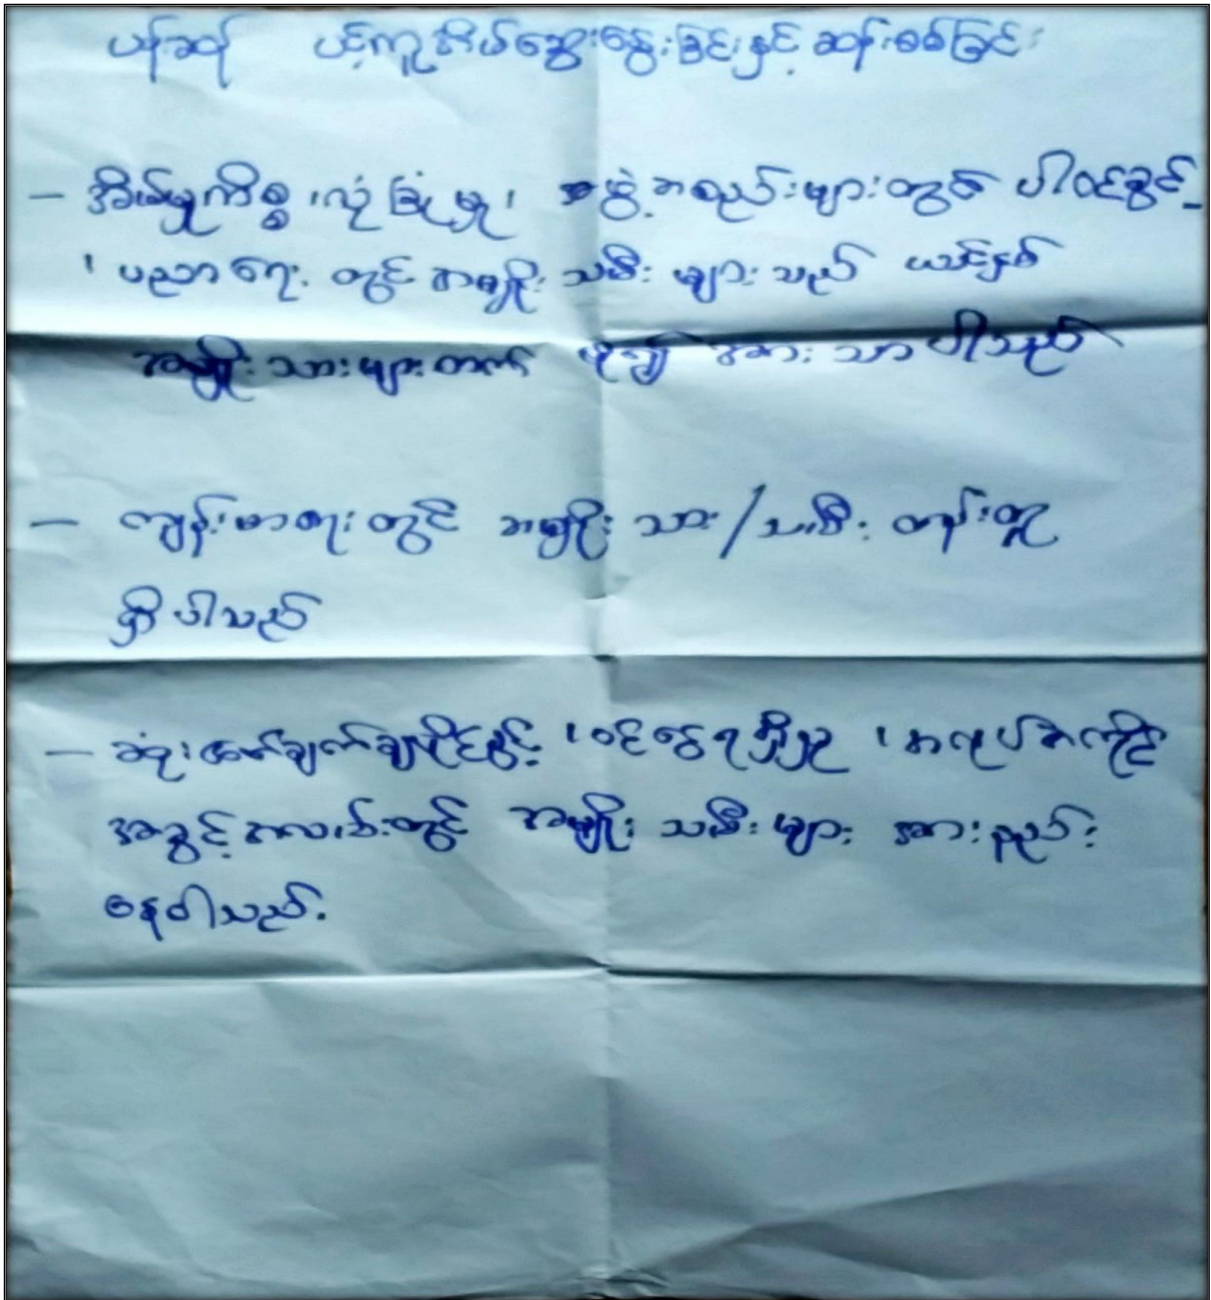 ပန်းဆန် ပင့်ကူအိမ်ဆွေးနွေးခြင်းနှင့် ဆန်းစစ်ခြင်း
– အိမ်မှုကိစ္စ ၊လုံခြုံမှု၊ အဖွဲ့အစည်းများတွင် ပါဝင်ခွင့်
၊ ပညာရေး တွင် အမျိုး သမီး များ သည် ယခင်နှစ်
အမျိုး သားများ ထက် ပို၍ အား သာ ပါသည်
– ကျန်းမာရေး တွင် အမျိုး သား/သမီး တန်းတူ
ရှိ ပါသည်
– ဆုံးဖြတ်ချက်ချပိုင်ခွင့် ၊ဝင်ငွေရရှိမှု ၊အလုပ်အကိုင်
အခွင့်အလမ်းတွင် အမျိုး သမီး များ အားနည်း
နေပါသည်.